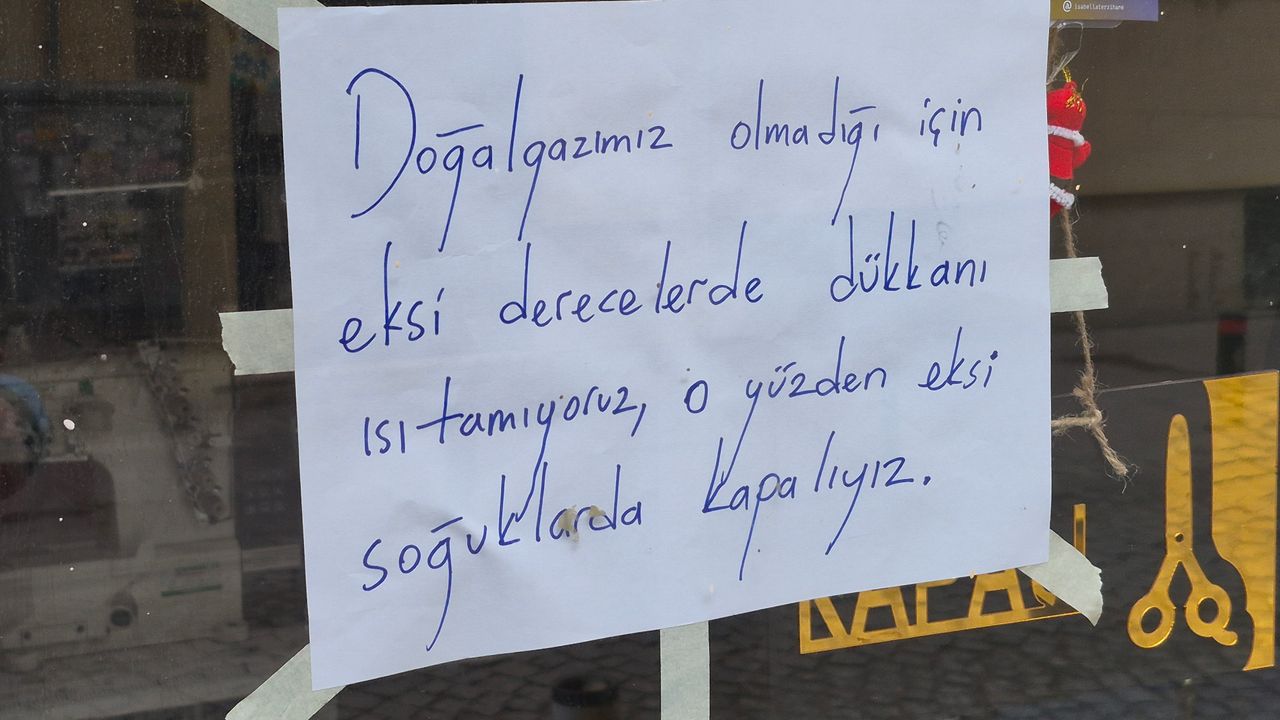 @isabellaterzihane
Doğalgazımız olmadığı için
eksi derecelerde dükkanı
ısıtamıyoruz, o yüzden eksi
soğuklarda kapalıyız.